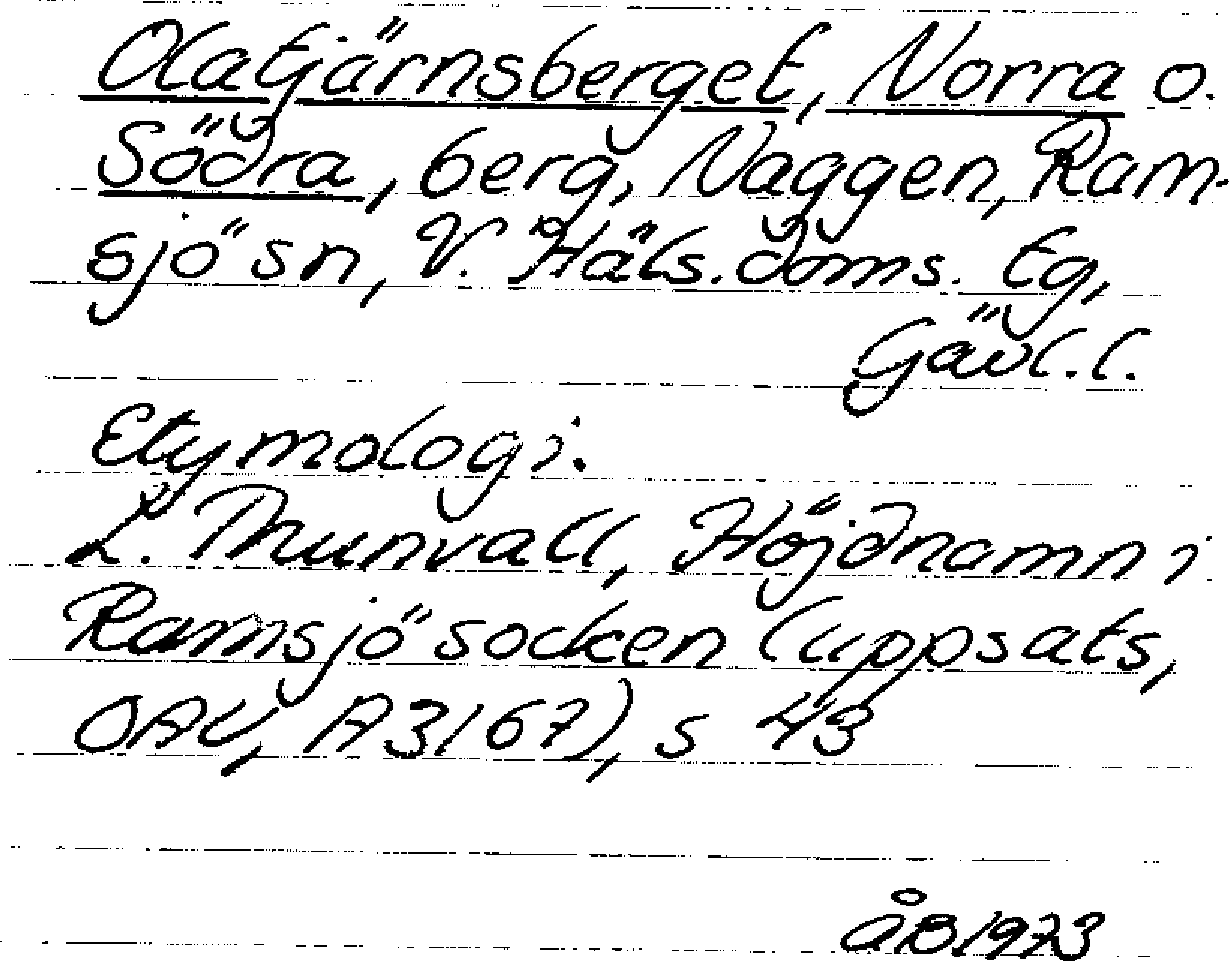 Olatjärnsberget, Norra o.
Södra, berg, Naggen, Ram-
sjö sn, V. Häls. doms. tg,
Gävl. l.
Etymologi.
L. Thunvall, Höjdnamn i
Ramsjö socken (uppsats,
OAU, A3167), s 43
åB 1973